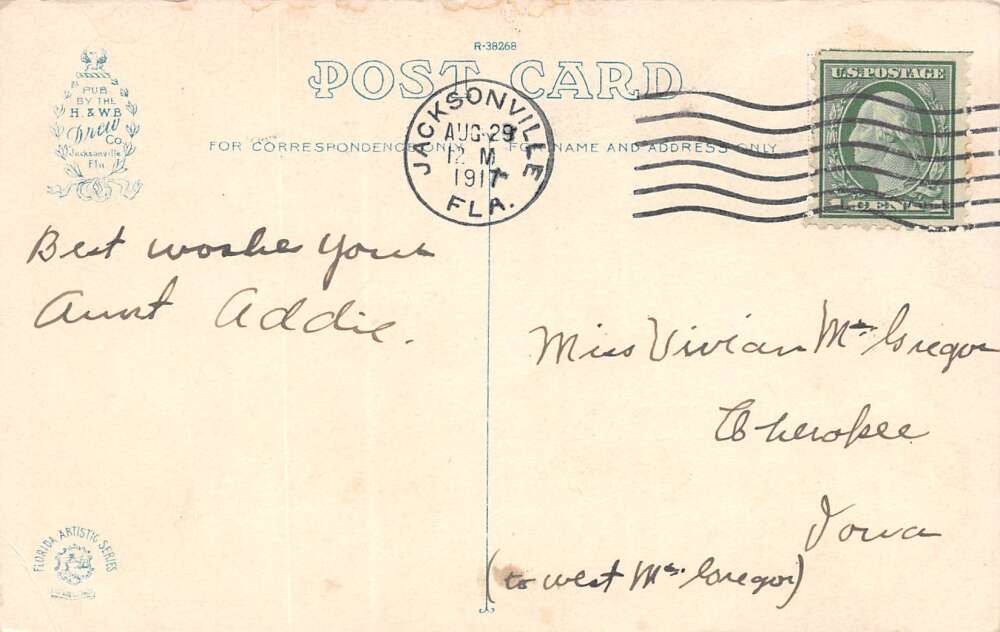 R-38268
POST CARD
PUB
BY THE
H. & W.B.
Drew
Co.
Jacksonville
Fla.
FOR CORRESPONDENCE ONLY
FOR NAME AND ADDRESS ONLY
JACKSONVILLE
AUG 29
12 M
1917
FLA.
U.S. POSTAGE
1 CENT 1
Best woshes your
Aunt Addie.
Miss Vivian McGregor
Cherokee
Iowa
(to west McGregor)
FLORIDA ARTISTIC SERIES